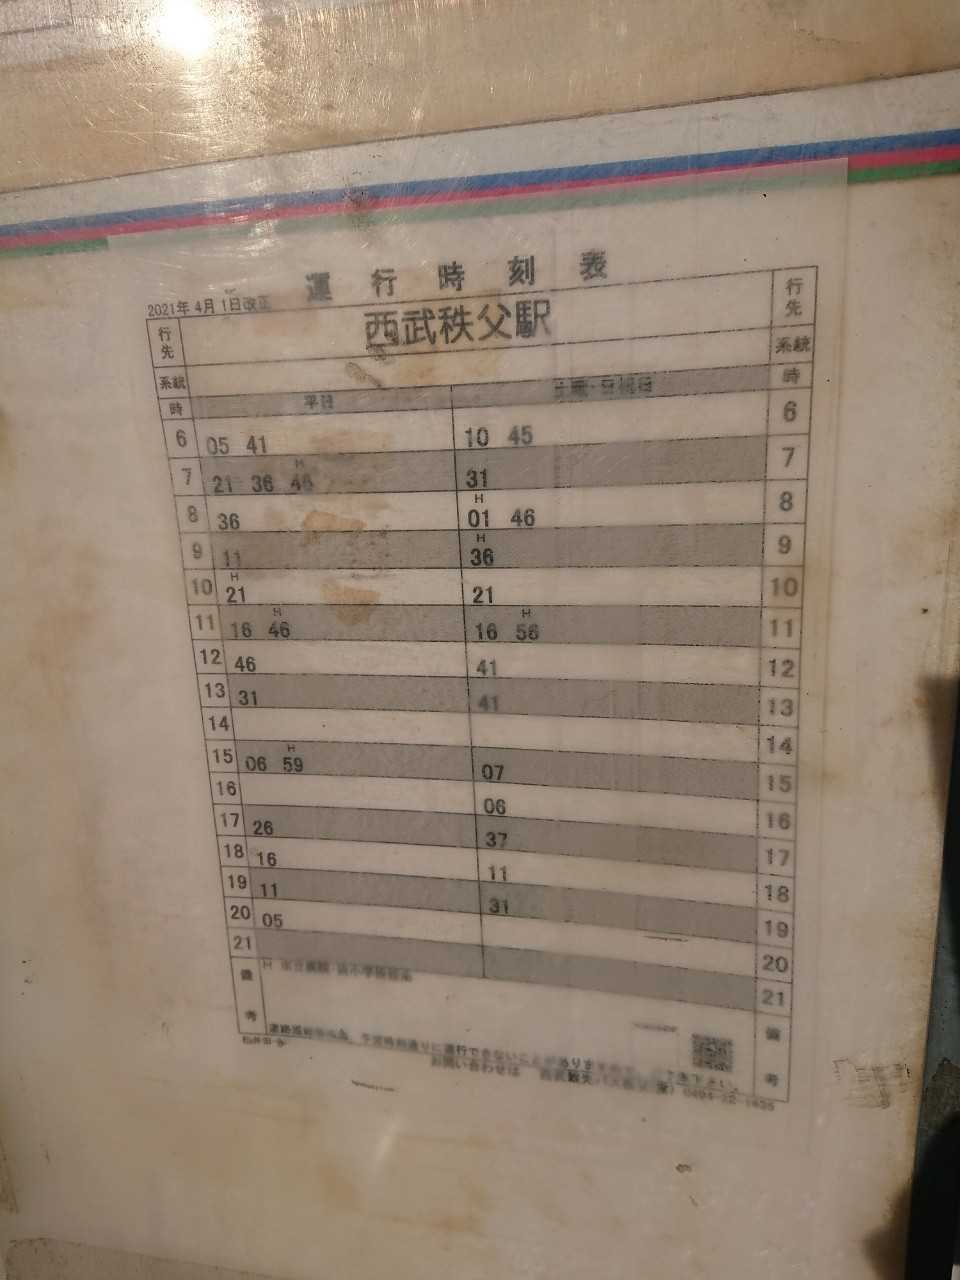 運行時刻表
2021年 4月 1日改正
行先 西武秩父駅 行先
系統 系統
時 平日 土曜・日祝日 時
6 05 41 10 45 6
H
7 21 36 46 31 7
H
8 36 01 46 8
H
9 11 36 9
H
10 21 21 10
H H
11 16 46 16 56 11
12 46 41 12
13 31 41 13
14 14
H
15 06 59 07 15
16 06 16
17 26 37 17
18 16 11 18
19 11 31 19
20 05 20
21 21
備考 H 備考
予定時刻通りに運行できないことがあります
お問い合わせは